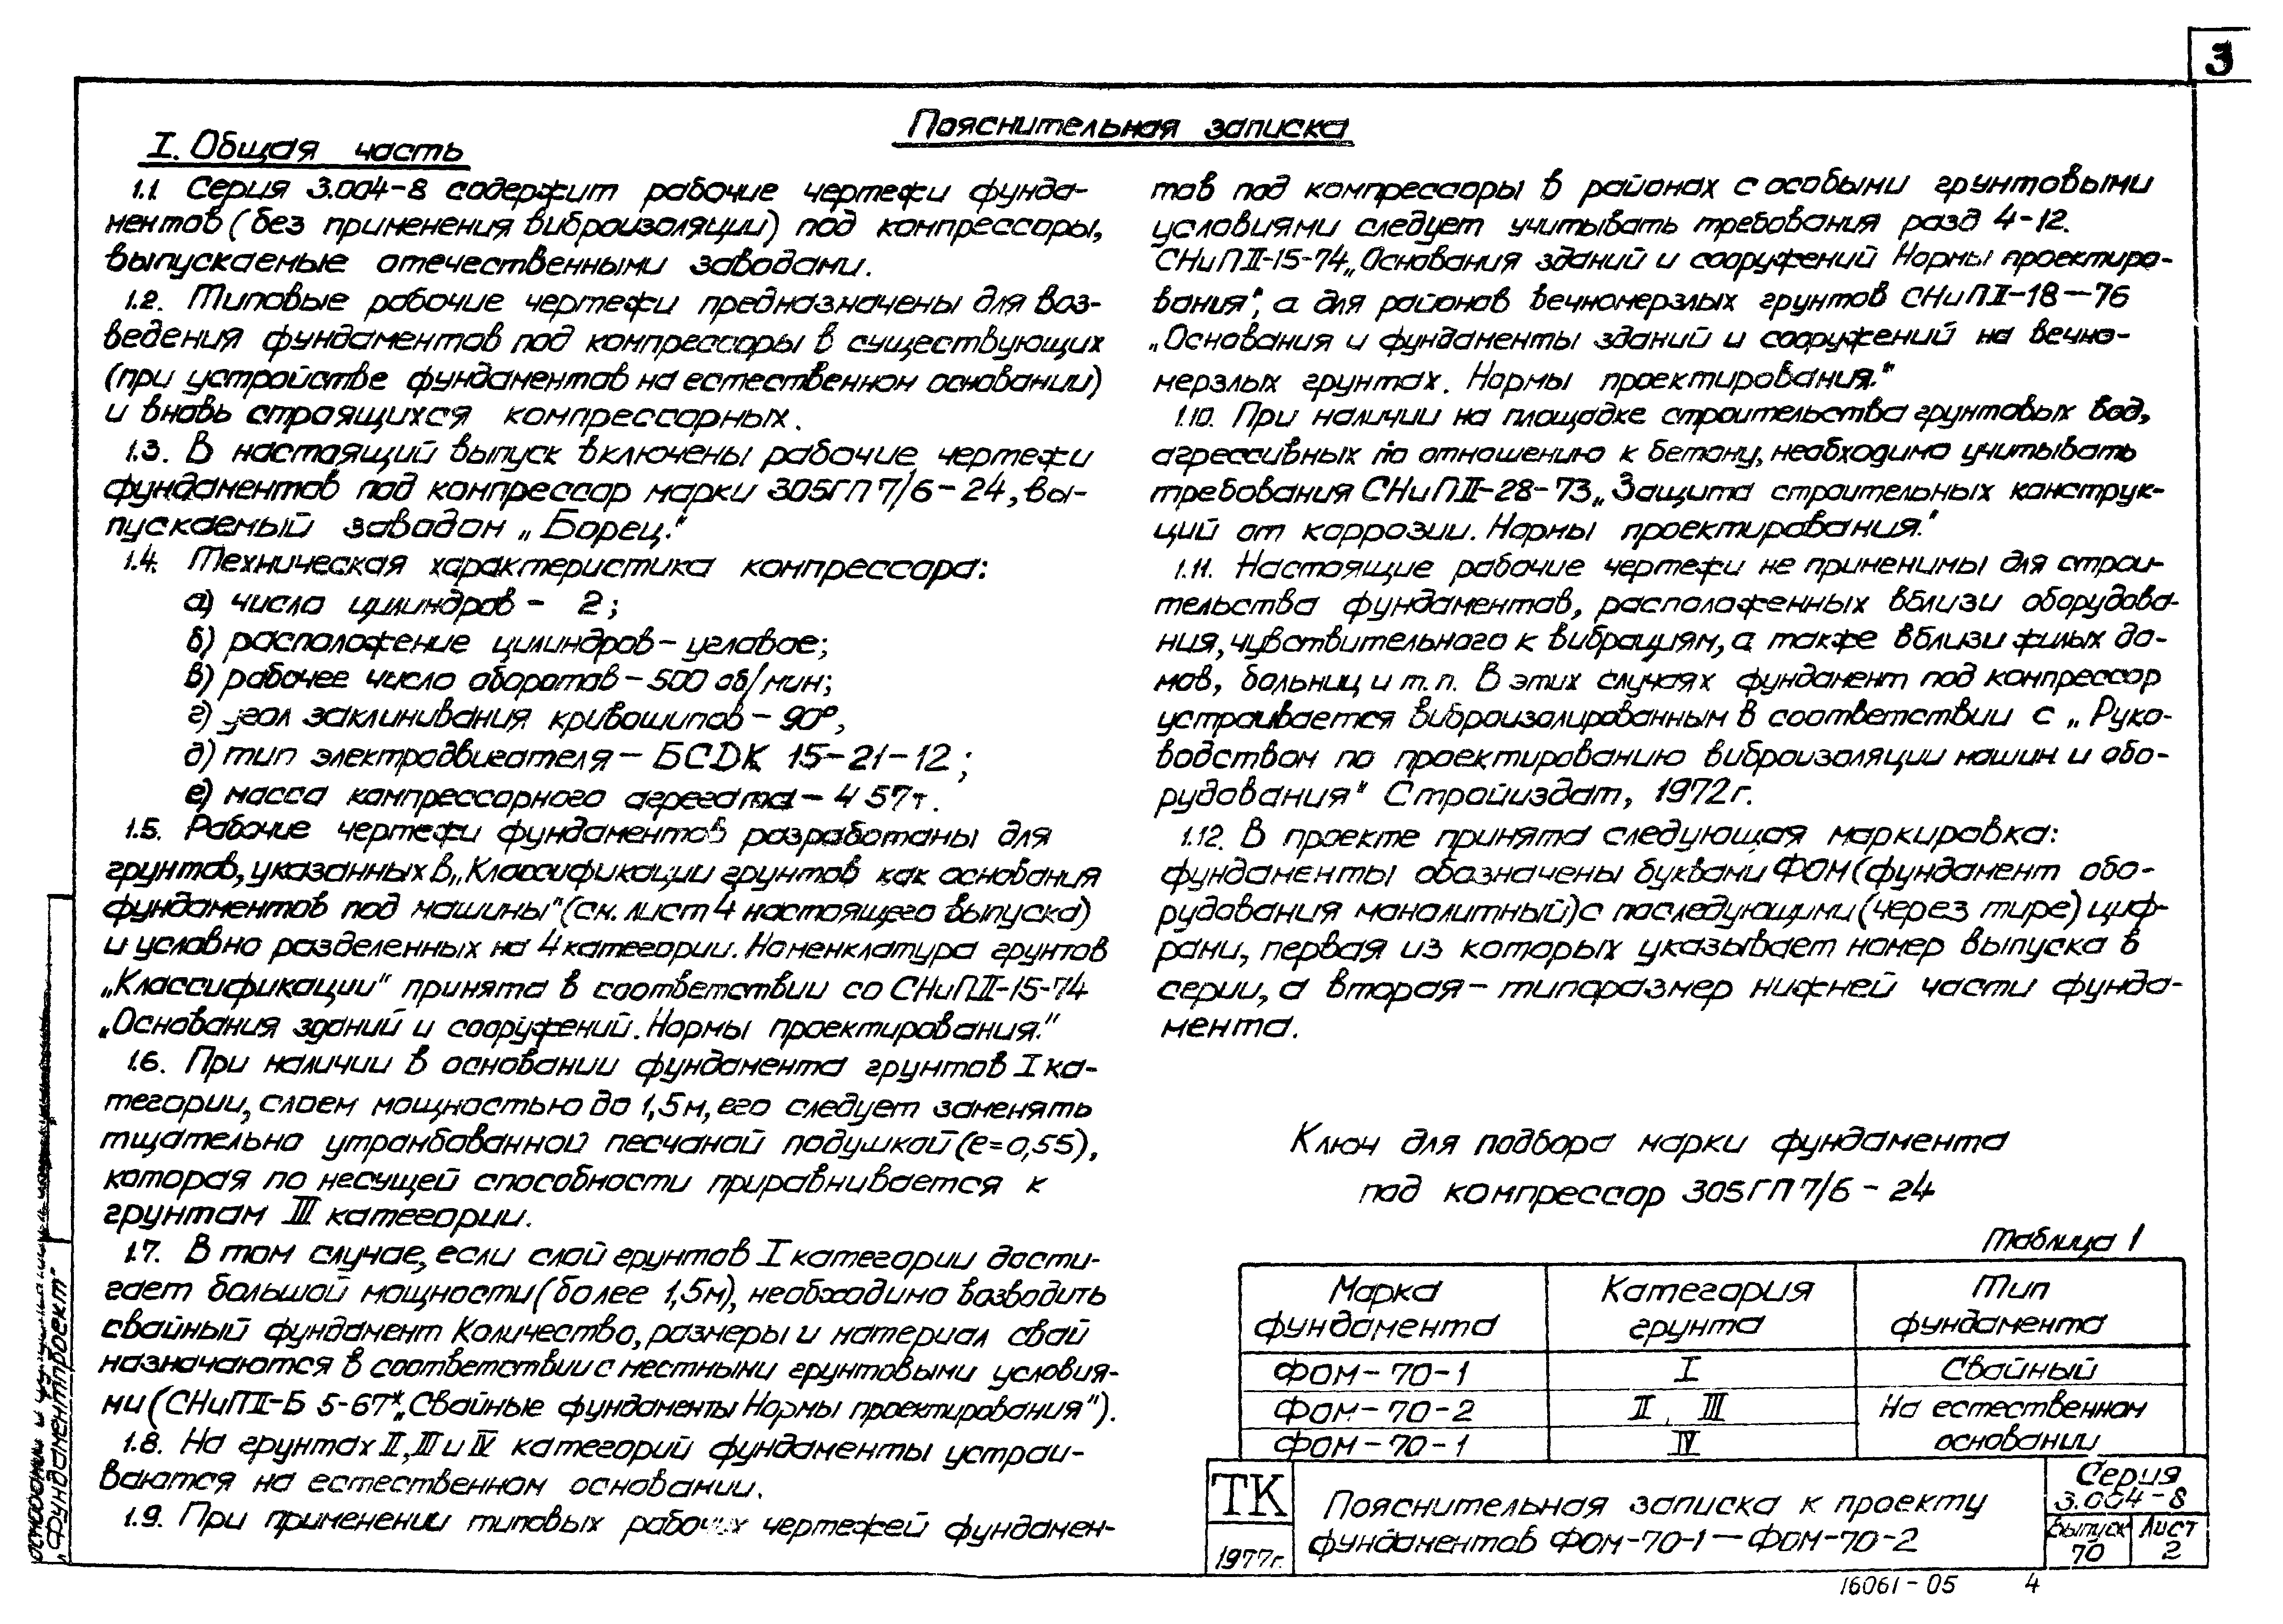 3
Пояснительная записка
I. Общая часть
1.1 Серия 3.004-8 содержит рабочие чертежи фунда-
ментов (без применения виброизоляции) под компрессоры,
выпускаемые отечественными заводами.
1.2. Типовые рабочие чертежи предназначены для воз-
ведения фундаментов под компрессоры в существующих
(при устройстве фундаментов на естественном основании)
и вновь строящихся компрессорных.
1.3. В настоящий выпуск включены рабочие чертежи
фундаментов под компрессор марки 305ГП 7/6-24, вы-
пускаемый заводом „Борец."
1.4. Техническая характеристика компрессора:
а) число цилиндров - 2;
б) расположение цилиндров - угловое;
в) рабочее число оборотов - 500 об/мин;
г) угол заклинивания кривошипов - 90°,
д) тип электродвигателя - БСДК 15-21-12;
е) масса компрессорного агрегата - 4 57т.
1.5. Рабочие чертежи фундаментов разработаны для
грунтов, указанных в „Классификации грунтов как основания
фундаментов под машины" (см. лист 4 настоящего выпуска)
и условно разделенных на 4 категории. Номенклатура грунтов
„Классификации" принята в соответствии со СНиП II-15-74
„Основания зданий и сооружений. Нормы проектирования."
1.6. При наличии в основании фундамента грунтов I ка-
тегории, слоем мощностью до 1,5м, его следует заменять
тщательно утрамбованной песчаной подушкой (е=0,55),
которая по несущей способности приравнивается к
грунтам III категории.
1.7. В том случае, если слой грунтов I категории дости-
гает большой мощности (более 1,5м), необходимо возводить
свайный фундамент Количество, размеры и материал свай
назначаются в соответствии с местными грунтовыми условия-
ми (СНиП II-Б 5-67* „Свайные фундаменты Нормы проектирования").
1.8. На грунтах II, III и IV категорий фундаменты устраи-
ваются на естественном основании.
1.9. При применении типовых рабочих чертежей фундамен-
тов под компрессоры в районах с особыми грунтовыми
условиями следует учитывать требования разд 4-12.
СНиП II-15-74 „Основания зданий и сооружений Нормы проектиро-
вания", а для районов вечномерзлых грунтов СНиП II-18-76
„Основания и фундаменты зданий и сооружений на вечно-
мерзлых грунтах. Нормы проектирования."
1.10. При наличии на площадке строительства грунтовых вод,
агрессивных по отношению к бетону, необходимо учитывать
требования СНиП II-28-73 „Защита строительных конструк-
ций от коррозии. Нормы проектирования."
1.11. Настоящие рабочие чертежи не применимы для строи-
тельства фундаментов, расположенных вблизи оборудова-
ния, чувствительного к вибрациям, а также вблизи жилых до-
мов, больниц и т.п. В этих случаях фундамент под компрессор
устраивается виброизолированным в соответствии с „Руко-
водством по проектированию виброизоляции машин и обо-
рудования" Стройиздат, 1972г.
1.12. В проекте принята следующая маркировка:
фундаменты обозначены буквами ФОМ (фундамент обо-
рудования монолитный) с последующими (через тире) циф-
рами, первая из которых указывает номер выпуска в
серии, а вторая - типоразмер нижней части фунда-
мента.
Ключ для подбора марки фундамента
под компрессор 305ГП 7/6 - 24
Таблица 1
Марка фундамента Категория грунта Тип фундамента
ФОМ-70-1 I Свайный
ФОМ-70-2 II, III На естественном
ФОМ-70-1 IV основании
ТК
1977г.
Пояснительная записка к проекту
фундаментов ФОМ-70-1 — ФОМ-70-2
Серия
3.004-8
Выпуск Лист
70 2
„Фундаментпроект"
16061-05 4